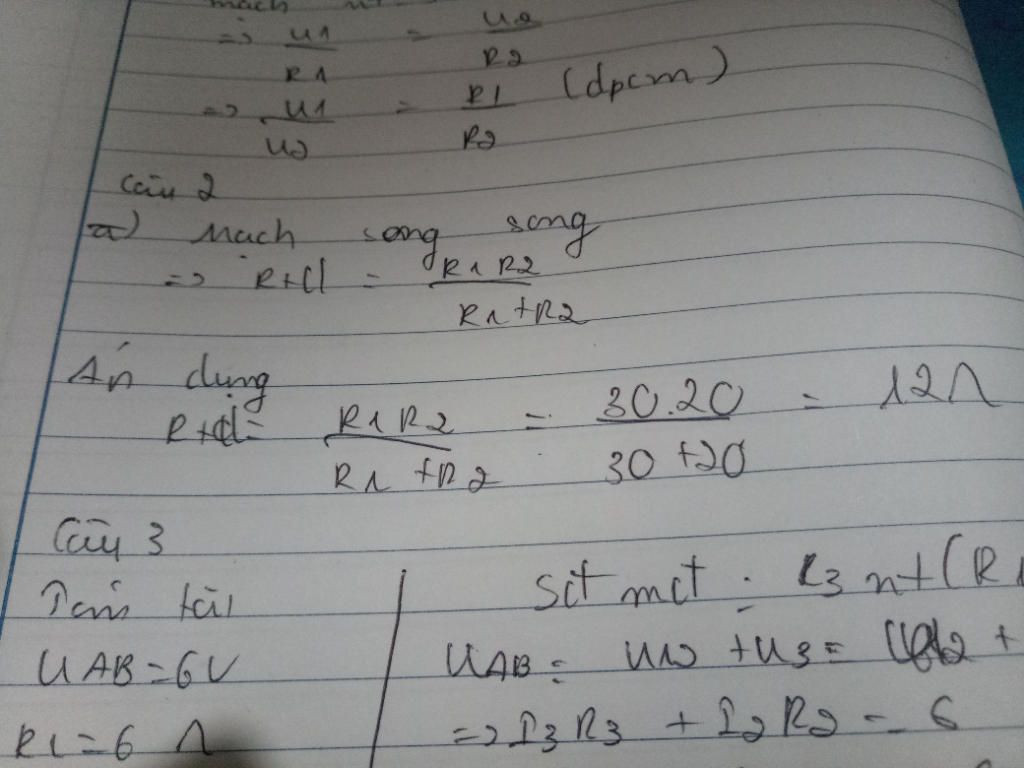 mạch nt
=> U1/R1 = U2/R2
=> U1/U2 = R1/R2 (đpcm)
Câu 2
a) Mạch song song
=> Rtđ = R1R2/R1+R2
Áp dụng
Rtđ = R1R2/R1+R2 = 30.20/30+20 = 12Ω
Câu 3
Tóm tắt
UAB = 6V
R1 = 6 Ω
Sđ mđ : R3 nt (R1
UAB = U12 + U3 =
=> I3R3 + I2R2 = 6